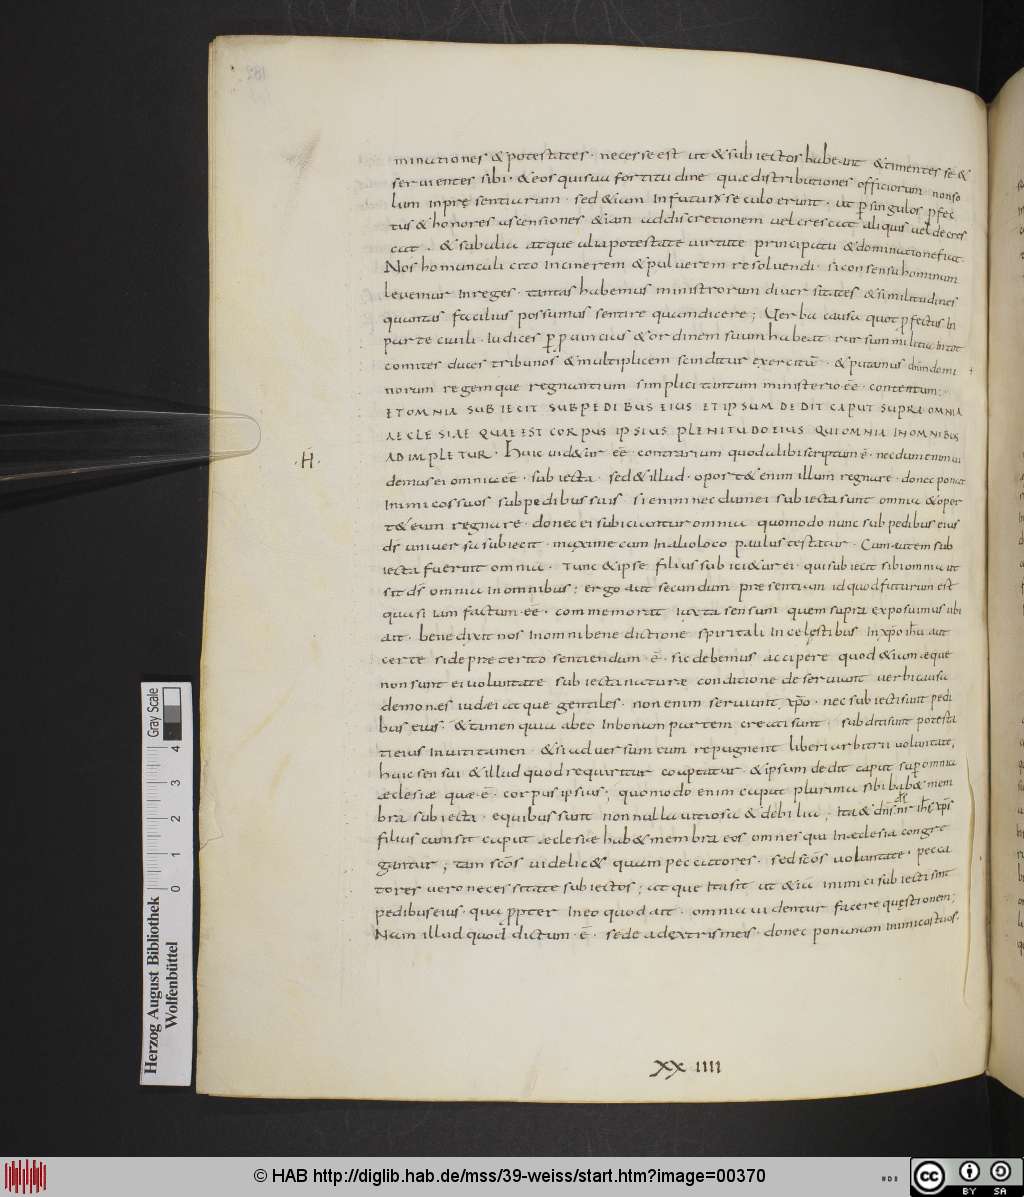 minationes & potestates · necesse est ut & subiectos habeant & timentes se &
seruientes sibi · & eos qui sua fortitudine quae distributiones officiorum non so
lum in presentiarum · sed & iam in futuro seculo erunt · ut p singulos pfec
tus & honores ascensiones & iam ad discretionem uel crescat aliquis uel decres
cat · & sub alia atque alia potestate uirtute principatu & dominatione fiat ·
Nos homunculi cito in cinerem & puluerem resoluendi · si consensu hominum
leuemur in reges · tantas habemus ministrorum diuersitates & similitudines
quantas facilius possumus sentire quam dicere ; Uerbi causa quot pfectus in
parte ciuili · Iudices p puincias & ordinem suum habeat · rursum militia in tot
comites duces tribunos & multiplicem scinditur exercitū · & putamus dnm domi
norum regem que regnantium simplici tantum ministerio ee · contentum ·
ET OMNIA SUBIECIT SUB PEDIBUS EIUS ET IPSUM DEDIT CAPUT SUPRA OMNIA
AECLESIAE QUAE EST CORPUS IPSIUS PLENITUDO EIUS QUI OMNIA IN OMNIBUS
·H· ADIMPLETUR · Huic uid&ur eē contrarium quod alibi scriptum ē · necdum enim ui
demus ei omnia eē · subiecta · sed & illud · oport& enim illum regnare · donec ponat
Inimicos suos sub pedibus suis si enim necdum ei subiecta sunt omnia & opor
t& eum regnare · donec ei subiciantur omnia quomodo nunc sub pedibus eius
ds uniuersa subiecit · maxime cum In alio loco paulus testatur · Cum autem sub
iecta fuerint omnia · Tunc & ipse filius subici&ur ei · qui subiecit sibi omnia ut
sit ds omnia In omnibus ; ergo aut secundum praesentiam id quod futurum est
quasi iam factum eē · commemorat iuxta sensum quem supra exposuimus ubi
ait · benedixit nos In omni benedictione spiritali In celestibus In xpo ihu aut
certe si de praeterito sentiendum ē · sic debemus accipere quod & iam ea que
non sunt ei uoluntate subiecta naturae condicione deseruiunt uerbi causa
demones iudaei atque gentiles · non enim seruiunt xpo · nec subiecti sunt pedi
bus eius · & tamen quia ab eo In bonam partem creati sunt · subditi sunt potesta
ti eius Inuiti tamen · & si aduersum eum repugnent liberi arbitrii uoluntate ;
huic sensui & illud quod requiritur coaptatur · & ipsum dedit caput sup omnia
aeclesiae quae ē · corpus ipsius ; quomodo enim caput plurima sibi hab& mem
bra subiecta · e quibus sunt nonnulla uitiosa & debilia ; Ita & dns nr ihs xps
filius cum sit caput aeclesiae hab& membra eos omnes qui In aeclesia congre
gantur ; tam scōs uidelic& quam peccatores · sed scōs uoluntate · pecca
tores uero necessitate subiectos ; atque Ita sit ut & iā inimici subiecti sint
pedibus eius · qua ppter In eo quod ait · omnia uidentur facere questionem ;
Nam illud quod dictum · ē · sede a dextris meis · donec ponam inimicos tuos ·
XX IIII
Herzog August Bibliothek
Wolfenbüttel
0 1 2 3 4
Gray Scale
© HAB http://diglib.hab.de/mss/39-weiss/start.htm?image=00370
cc BY SA